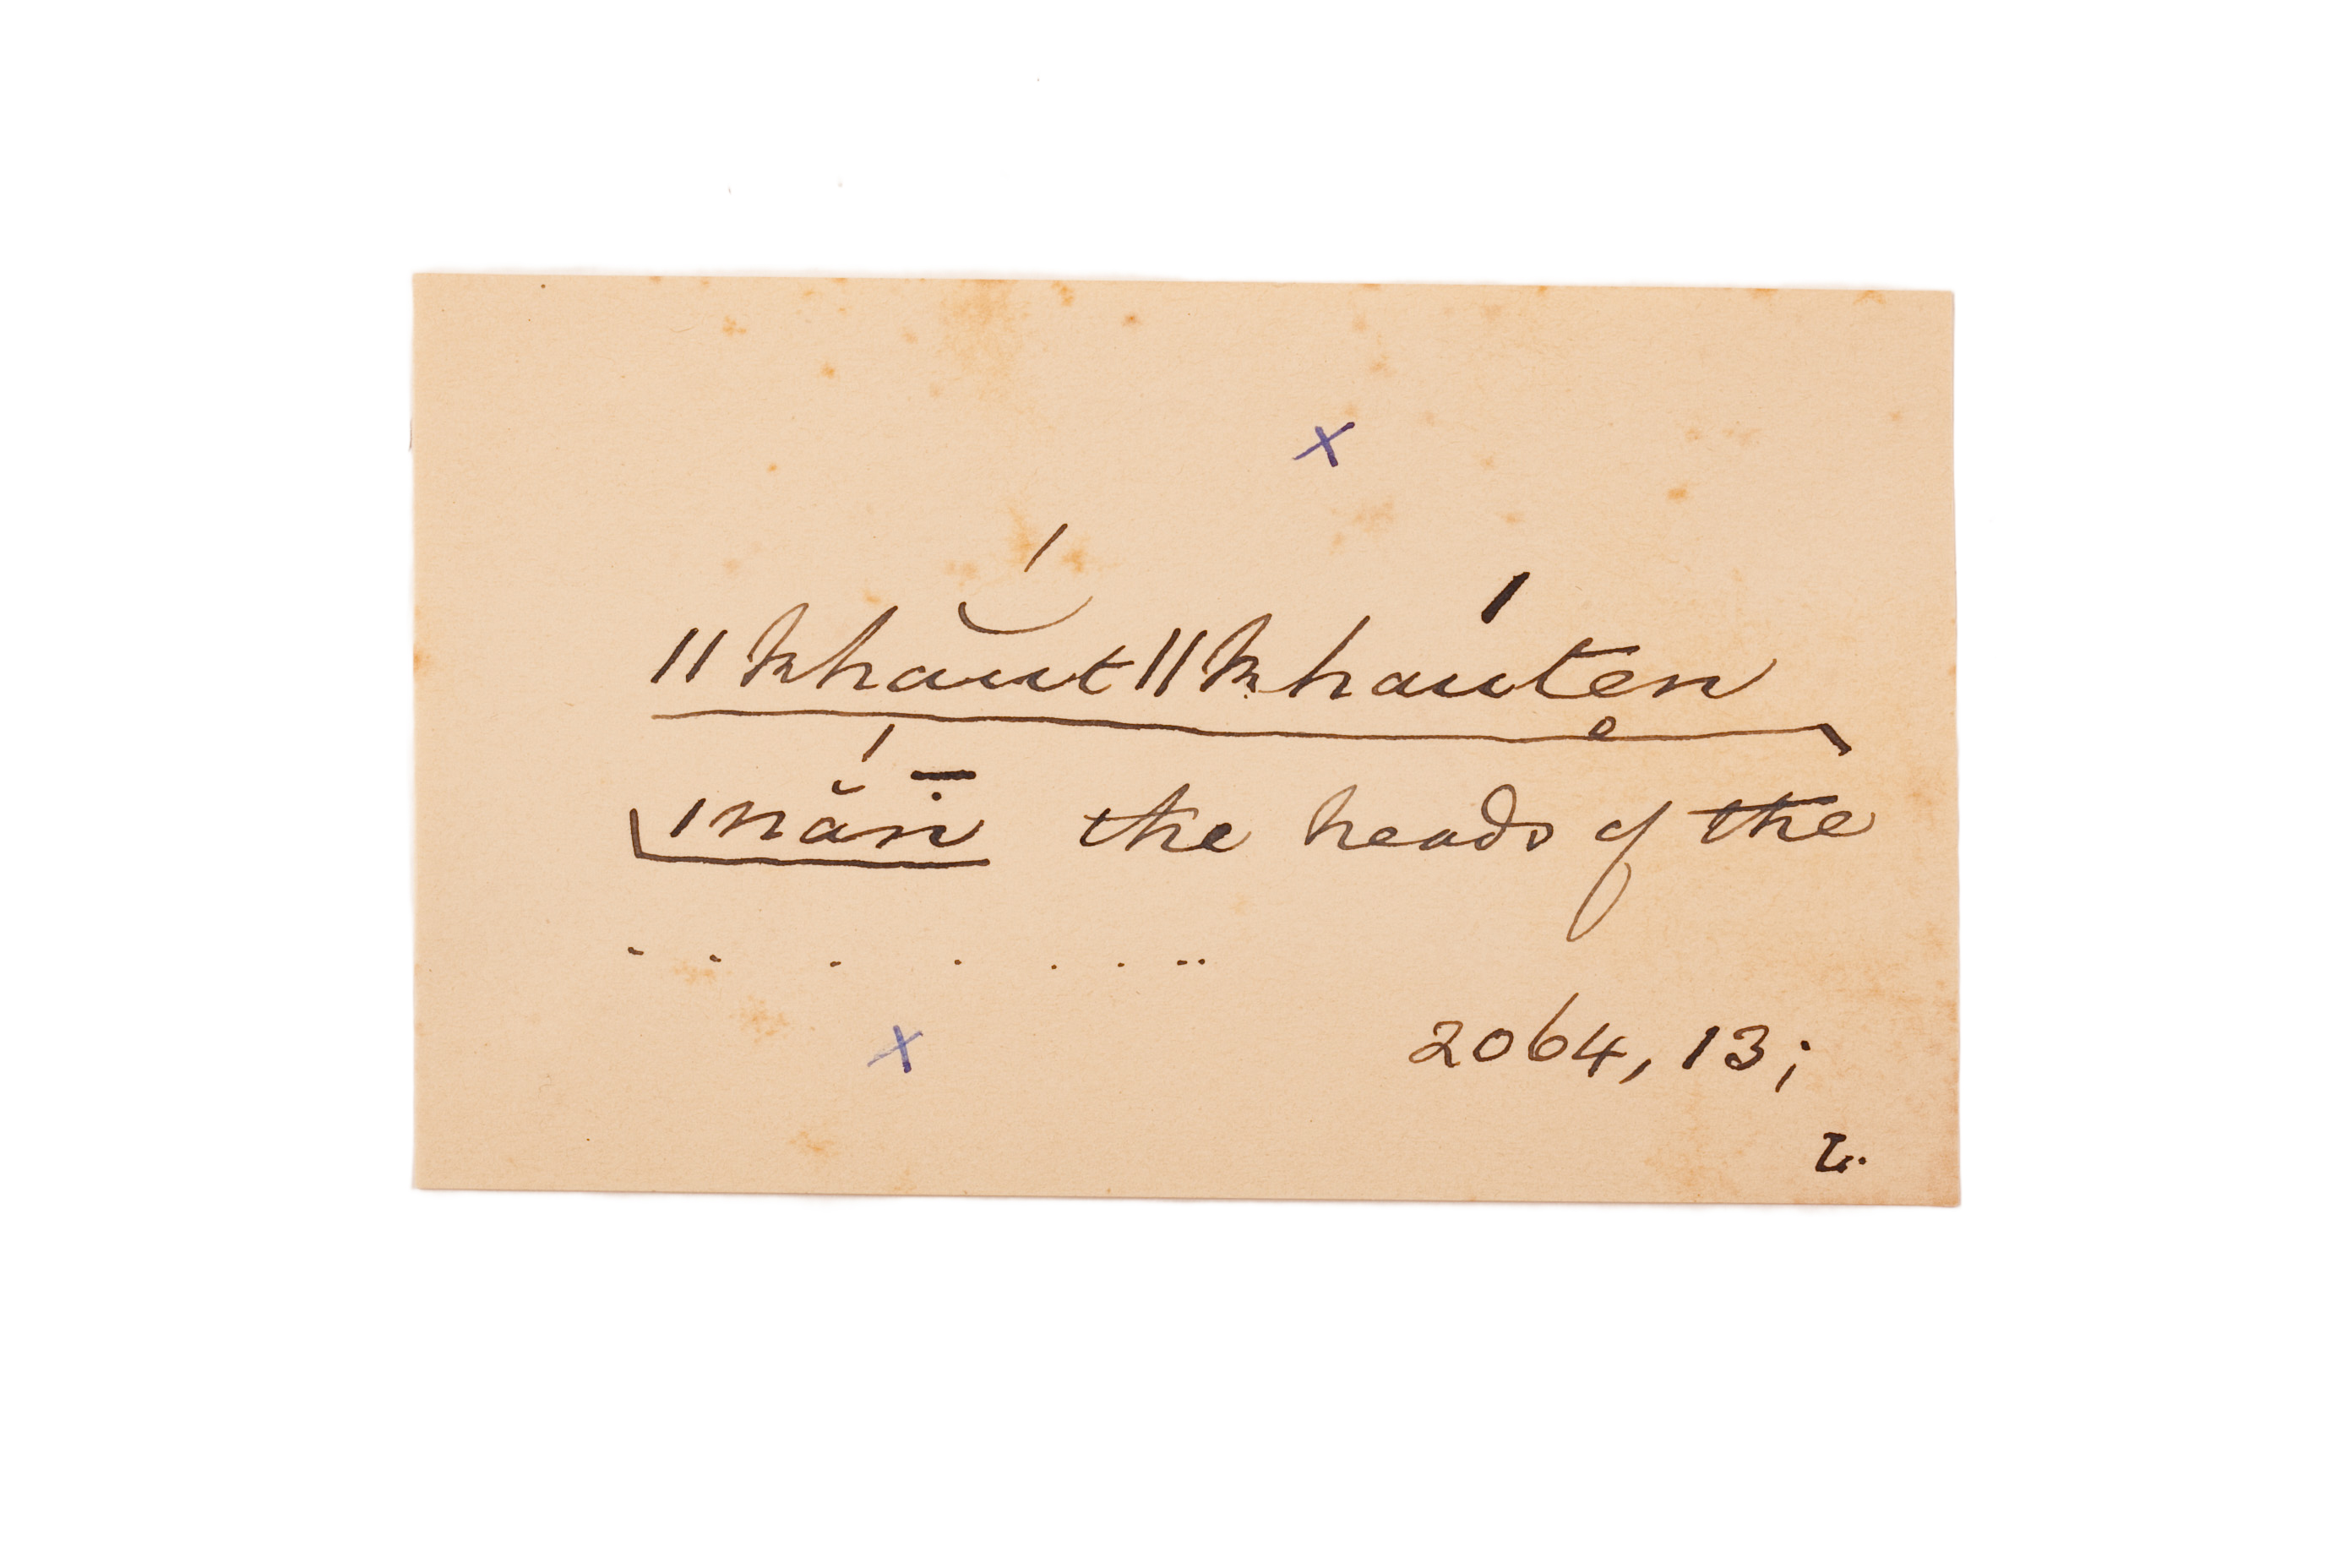 x
ǁkhăŭ́t ǁkhaúten̥
ǀnắṅ̄ the heads of the
. . . . . . . .
x
2064, 13;
L.